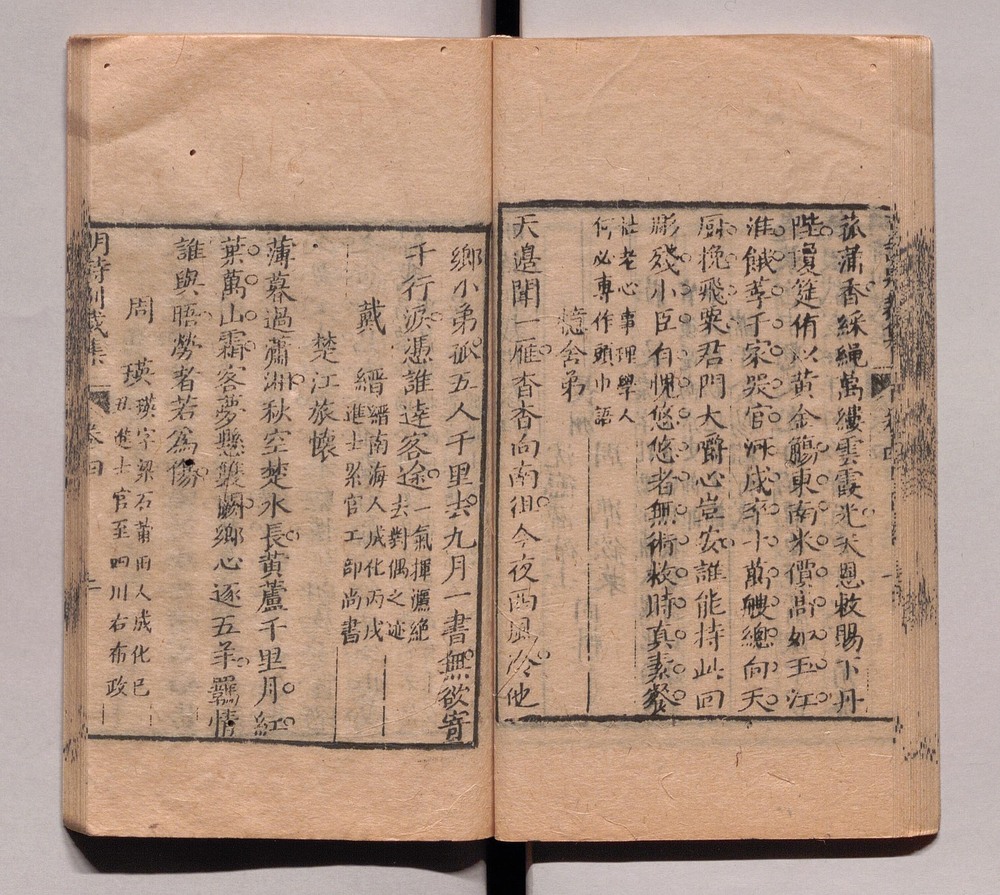 菰蒲香綵繩萬縷雲霞光天恩敕賜下丹
陛瓊筵侑以黃金觴東南米價高如玉江
淮餓莩千家哭官河戍卒十萬艘總向天
厨挽飛粟君門大嚼心豈安誰能持此回
彫殘小臣有愧悠悠者無術救時真素餐
壯老心事理學人
何必專作頭巾語
憶舍弟
天邊聞一雁杳杳向南徂今夜西風冷他
鄉小弟孤五人千里去九月一書無欲寄
千行淚憑誰達客途一氣揮灑絕
去對偶之迹
戴縉縉南海人成化丙戌
進士累官工部尚書
楚江旅懷
薄暮過瀟湘秋空楚水長黃蘆千里月紅
葉萬山霜客夢懸雙闕鄉心逐五羊羈情
誰與晤勞者若為傷
周瑛瑛字梁石莆田人成化己
丑進士官至四川右布政
明詩別裁集 卷四